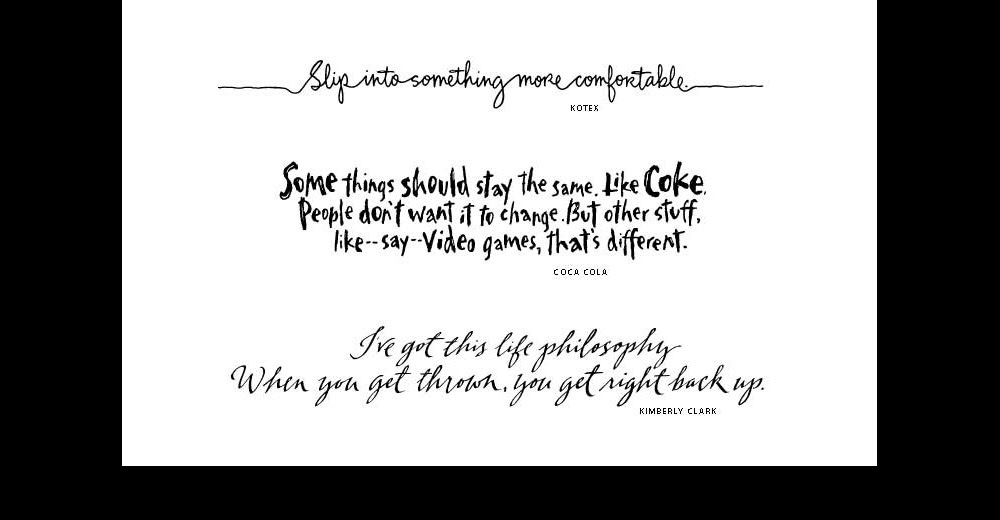 Slip into something more comfortable.
KOTEX
Some things should stay the same. Like Coke.
People don't want it to change. But other stuff,
like--say--Video games, that's different.
COCA COLA
I've got this life philosophy
When you get thrown, you get right back up.
KIMBERLY CLARK